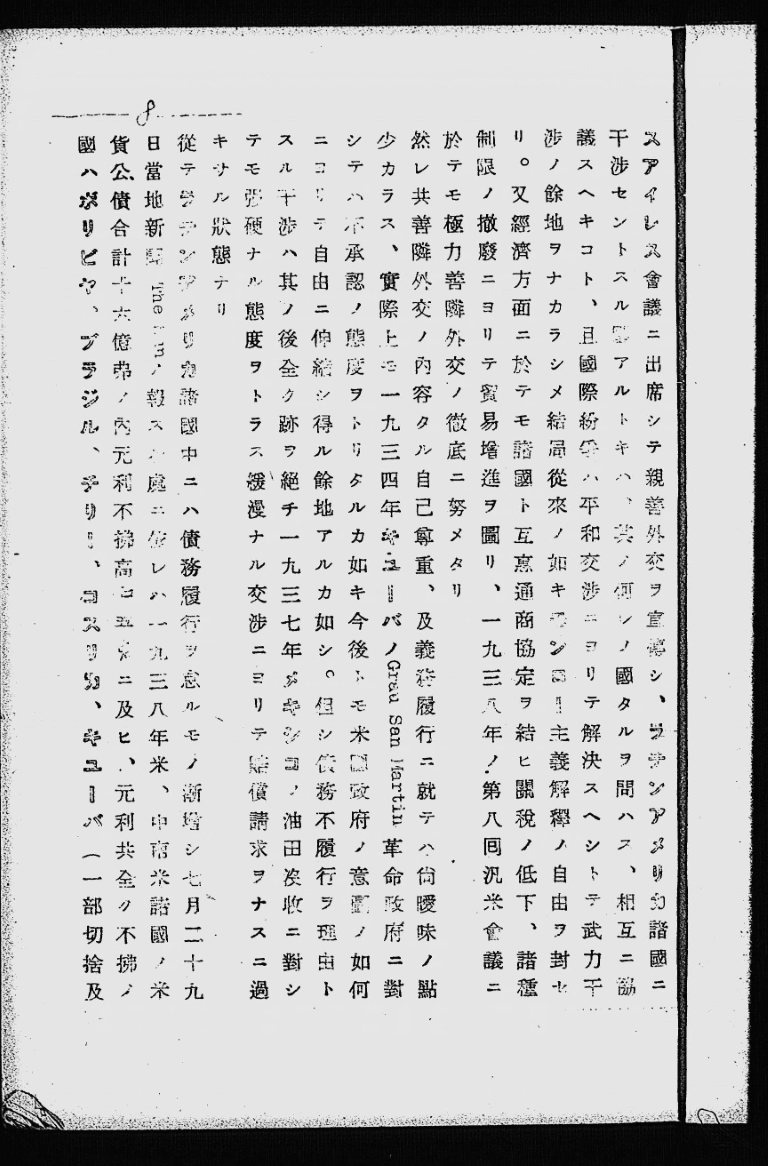 スアイレス會議ニ出席シテ親善外交ヲ宣傳シ、ラテンアメリカ諸國ニ
干涉セントスル國アルトキハ、其ノ何レノ國タルヲ問ハス、相互ニ協
議スヘキコト、且國際紛爭ハ平和交涉ニヨリテ解決スヘシトテ武力干
涉ノ餘地ヲナカラシメ結局從來ノ如キモンロー主義解釋ノ自由ヲ封セ
リ。又經濟方面ニ於テモ諸國ト互惠通商協定ヲ結ヒ關稅ノ低下、諸種
制限ノ撤廢ニヨリテ貿易增進ヲ圖リ、一九三八年ノ第八囘汎米會議ニ
於テモ極力善隣外交ノ徹底ニ努メタリ
然レ共善隣外交ノ內容タル自己尊重、及義務履行ニ就テハ尙曖昧ノ點
少カラス、實際上モ一九三四年キューバノGrau San Martin革命政府ニ對
シテハ不承認ノ態度ヲトリタルカ如キ今後トモ米國政府ノ意圖ノ如何
ニヨリテ自由ニ伸縮シ得ル餘地アルカ如シ。但シ債務不履行ヲ理由ト
スル干涉ハ其ノ後全ク跡ヲ絕チ一九三七年メキシコノ油田沒收ニ對シ
テモ强硬ナル態度ヲトラス緩漫ナル交涉ニヨリテ賠償請求ヲナスニ過
キサル狀態ナリ
從テラテンアメリカ諸國中ニハ債務履行ヲ怠ルモノ漸增シ七月二十九
日當地新聞 The ノ報スル處ニ依レハ一九三八年米、中南米諸國ノ米
貨公債合計十六億弗ノ內元利不拂高七五%ニ及ヒ、元利共全ク不拂ノ
國ハボリビヤ、ブラジル、チリー、コスリカ、キューバ(一部切捨及
8